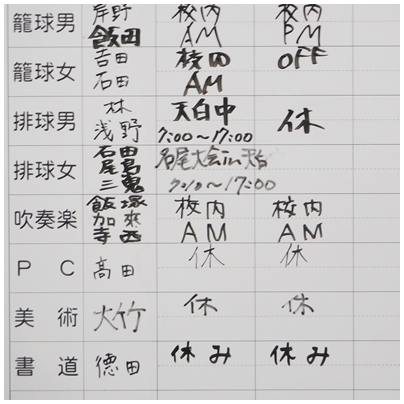 籠球男 岸野 校内 校内
飯田 AM PM
籠球女 吉田 校内 OFF
石田 AM
排球男 林 天白中 休
浅野 7:00～17:00
排球女 石田 名尾大会in天白
尾島 7:00～17:00
三鬼
吹奏楽 飯塚 校内 校内
加來 AM AM
寺西
PC 高田 休 休
美術 大竹 休 休
書道 德田 休み 休み